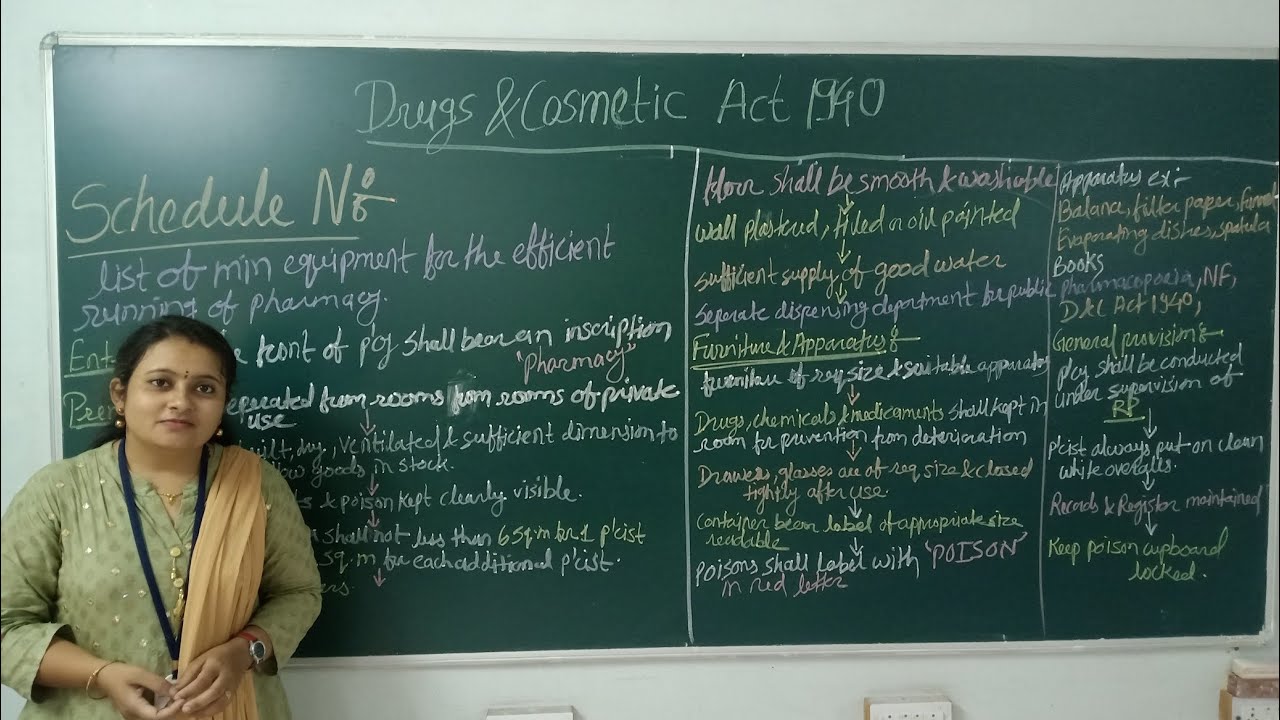 Drugs & Cosmetic Act 1940
Schedule N:
list of min equipment for the efficient
running of pharmacy.
Ent
front of p'cy shall bear an inscription
'Pharmacy'
Prem
seperated from rooms from rooms of private
use
uilt, dry, ventilated & sufficient dimension to
goods in stock.
s & poison kept clearly visible.
shall not less than 6 Sq.m for 1 p'cist
Sq. m for each additional p'cist.
ers.
floor shall be smooth & washable
wall plasterd, tiled or oil painted
sufficient supply of good water
Separate dispensing department for public
Furniture & Apparatus:
furniture of req, size & suitable apparatus
Drugs, chemicals & medicaments shall kept in
room for prevention from deterioration
Drawers, glasses are of req. size & closed
tightly after use.
Container bear label of appropriate size
readable
poisons shall label with 'POISON'
in red letter
Apparatus ex:-
Balance, filter paper, funnel
Evaporating dishes, spatula
Books
pharmacopoeia, NF,
D&C Act 1940,
General provisions
p'cy shall be conducted
under supervision of
RP
p'cist always put on clean
white overalls.
Records & Register maintained
Keep poison cupboard
locked.